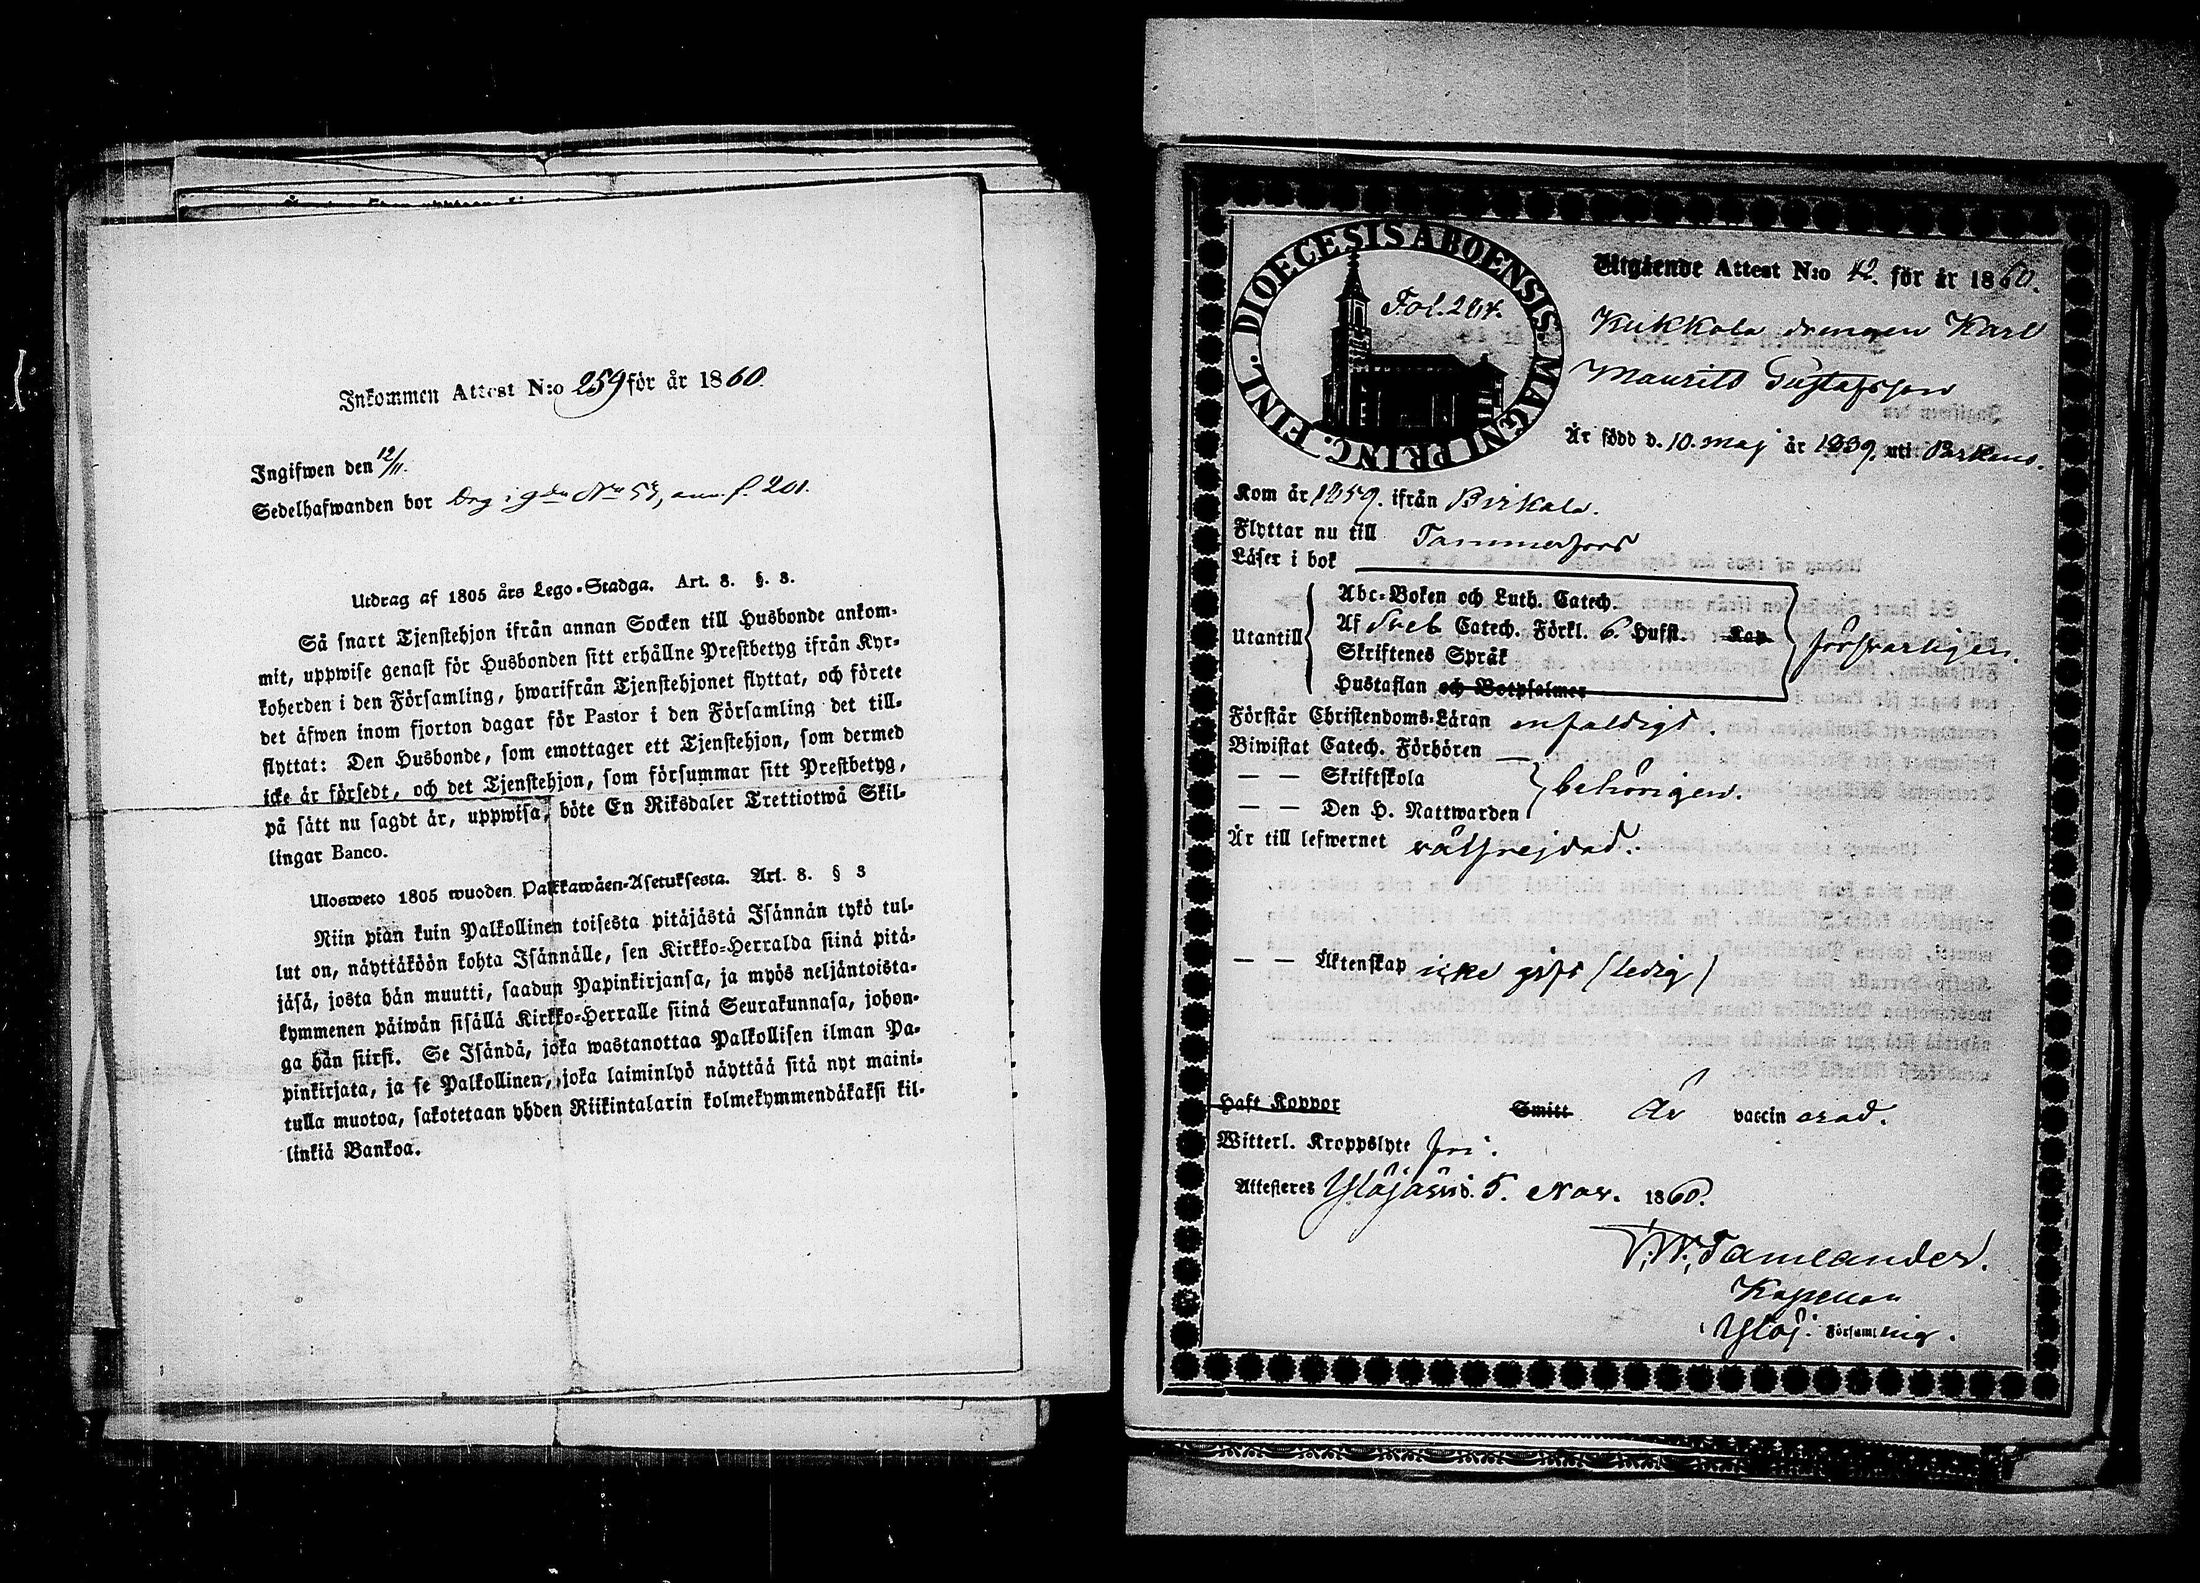 Inkommen Attest N:o 259 för år 1860.
Ingifwen den 12/11.
Sedelhafwanden bor Drg i g N:o 53, ann. f. 201.
Utdrag af 1805 års Lego-Stadga. Art. 8. §. 3.
Så snart Tjenstehjon ifrån annan Socken till Husbonde ankom-
mit, uppwise genast för Husbonden sitt erhållne Prestbetyg ifrån Kyr-
koherden i den Församling, hwarifrån Tjenstehjonet flyttat, och förete
det äfwen inom fjorton dagar för Pastor i den Församling det till-
flyttat: Den Husbonde, som emottager ett Tjenstehjon, som dermed
icke är försedt, och det Tjenstehjon, som försummar sitt Prestbetyg,
på sätt nu sagdt är, uppwisa, böte En Riksdaler Trettiotwå Skil-
lingar Banco.
Ulosweto 1805 wuoden Palkkawäen-Asetuksesta. Art. 8. § 3
Niin pian kuin Palkollinen toisesta pitäjästä Isännän tykö tul-
lut on, näyttäköön kohta Isännälle, sen Kirkko-Herralda siinä pitä-
jäsä, josta hän muutti, saadun Papinkirjansa, ja myös neljäntoista-
kymmenen päiwän sisällä Kirkko-Herralle siinä Seurakunnasa, johon-
ga hän siirsi. Se Isändä, joka wastanottaa Palkollisen ilman Pa-
pinkirjata, ja se Palkollinen, joka laiminlyö näyttää sitä nyt maini-
tulla muotoa, sakotetaan yhden Riikintalarin kolmekymmendäkaksi kil-
linkiä Bankoa.
FINL. DIOECESIS ABOENSIS. MAGNI PRINC.
Fol. 264.
Utgående Attest N:o 42 för år 1860.
Kukkola drengen Karl
Maurits Gustafsson
Är född d. 10. maj år 1839. uti Birkala.
Kom år 1859. ifrån Birkala.
Flyttar nu till Tammerfors
Läser i bok
Utantill
Abc-Boken och Luth. Catech.
Af Sveb. Catech. Förkl. 6. Hufst. Kap
Skriftenes Språk
Hustaflan och Botpsalmer
försvarligen.
Förstår Christendoms-Läran enfaldigt.
Biwistat Catech. Förhören
— — Skriftskola
— — Den H. Nattwarden
behörigen.
Är till lefwernet välfrejdad.
— — Äktenskap icke gift (ledig)
Haft Koppor Smitt Är vaccinerad.
Witterl. Kroppslyte fri.
Attesteres Ylöjärvi d. 5. Nov. 1860.
Tamlander.
Kapellan
Ylöj. Församling.